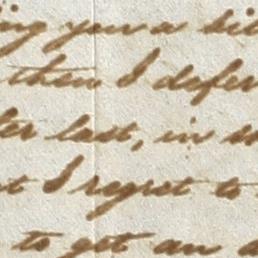 ing you a bil
then I defer
ter last, in
t I regret to
to get an a